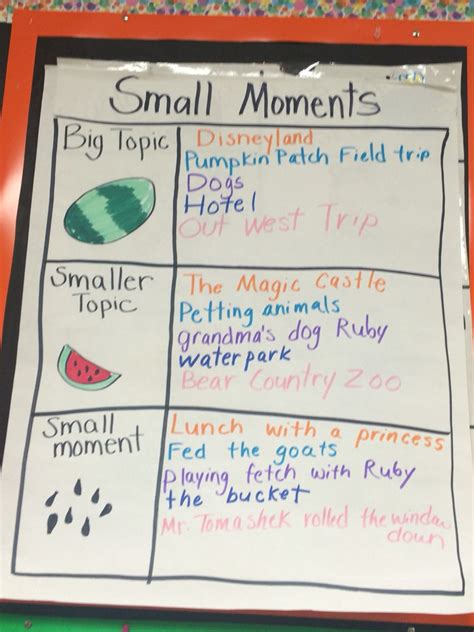 Small Moments
Big Topic
Disneyland
Pumpkin Patch Field trip
Dogs
Hotel
Out West Trip
Smaller
Topic
The Magic Castle
Petting animals
grandma's dog Ruby
waterpark
Bear Country Zoo
Small
moment
Lunch with a princess
Fed the goats
playing fetch with Ruby
the bucket
Mr. Tomashek rolled the window
down